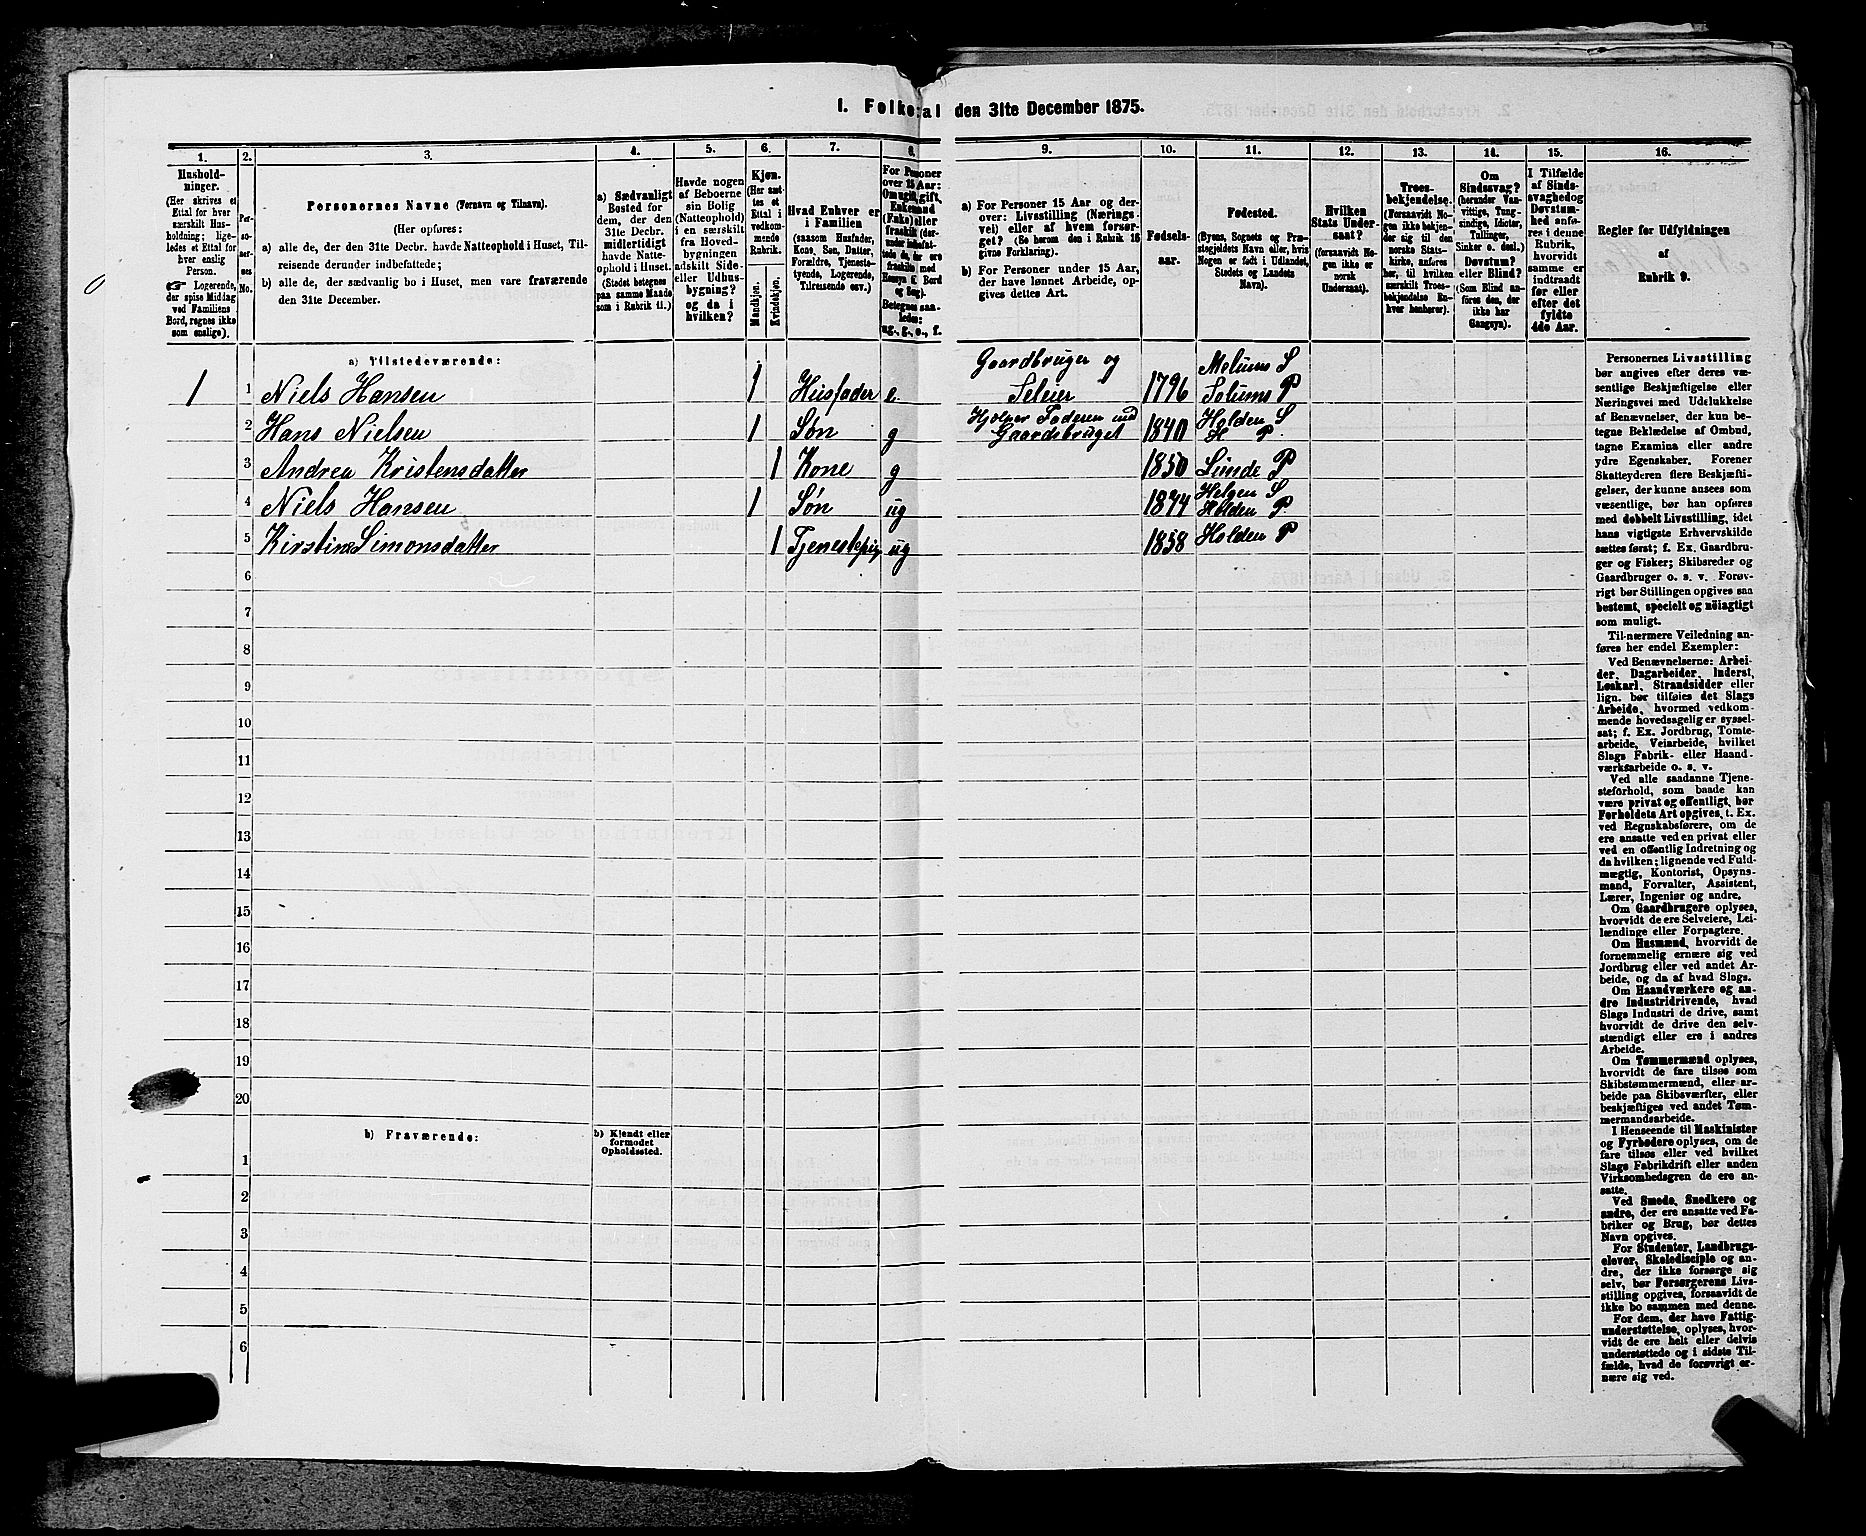 1. Folketal den 31te December 1875.
1.
2.
3.
4.
5.
6.
7.
8.
9.
10.
11.
12.
13.
14.
15.
16.
Hushold-
ninger.
(Her skrives et
Ettal for hver
særskilt Hus-
holdning; lige-
ledes et Ettal for
hver enslig
Person.
☛ Logerende,
der spise Middag
ved Familiens
Bord, regnes ikke
som enslige).
Per-
so-
ner-
nes
No.
Personernes Navne (Fornavn og Tilnavn).
(Her opføres:
a) alle de, der den 31te Decbr. havde Natteophold i Huset, Til-
reisende derunder indbefattede;
b) alle de, der sædvanlig bo i Huset, men vare fraværende
den 31te December.
a) Sædvanligt
Bosted for
dem, der den
31te Decbr.
midlertidigt
havde Natte-
ophold i Huset.
(Stedet betegnes
paa samme Maade
som i Rubrik 11.)
Havde nogen
af Beboerne
sin Bolig
(Natteophold)
i en særskilt
fra Hoved-
bygningen
adskilt Side-
eller Udhus-
bygning?
og da i
hvilken?
Kjøn.
(Her sæt-
tes et
Ettal i
vedkom-
mende
Rubrik.
Mandkjøn.
Kvindekjøn.
Hvad Enhver er
i Familien
(saasom Husfader,
Kone, Søn, Datter,
Forældre, Tjeneste-
tyende, Logerende,
Tilreisende osv.)
For Personer
over 15 Aar:
Om ugift, gift,
Enkemand
(Enke) eller
fraskilt (der-
under indbefat-
tede de, der ere
fraskilte med
Hensyn t. Bord
og Seng).
Betegnes saa-
ledes:
ug., g., e., f.
a) For Personer 15 Aar og der-
over: Livsstilling (Nærings-
vei) eller af hvem forsør-
get? (Se herom den i Rubrik 16
givne Forklaring).
b) For Personer under 15 Aar,
der have lønnet Arbeide, op-
gives dettes Art.
Fødsels-
aar.
Fødested.
(Byens, Sognets og Præ-
stegjeldets Navn eller, hvis
Nogen er født i Udlandet,
Stedets og Landets
Navn).
Hvilken
Stats Under-
saat?
(forsaavidt No-
gen ikke er
norsk
Undersaat).
Troes-
bekjendelse.
(Forsaavidt No-
gen ikke bekjen-
der sig til den
norske Stats-
kirke, anføres
her, til hvilken
særskilt Troes-
bekjendelse En-
hver henhører).
Om
Sindssvag?
(herunder Van-
vittige, Tung-
sindige, Idioter,
Tullinger,
Sinker o. desl.)
Døvstum?
eller Blind?
(Som Blind an-
føres den, der
ikke har
Gangsyn).
I Tilfælde
af Sinds-
svaghed og
Døvstum-
hed anfø-
res i denne
Rubrik,
hvorvidt
samme er
indtraadt
før eller
efter det
fyldte
4de Aar.
Regler for Udfyldningen
af
Rubrik 9.
a) Tilstedeværende:
1 1 Niels Hansen 1 Husfader e. Gaardbruger og Seleier 1796 Melums S Solums P
2 Hans Nielsen 1 Søn g Hjelper Faderen med Gaardsbruget 1840 Holden S H P.
3 Andrea Kristensdatter 1 Kone g 1850 Sunde P
4 Niels Hansen 1 Søn ug 1874 Helgen S Holden P
5 Kirstine Simonsdatter 1 Tjenestepig ug 1858 Holden P
6
7
8
9
10
11
12
13
14
15
16
17
18
19
20
b) Fraværende:
b) Kjendt eller
formodet
Opholdssted.
1
2
3
4
5
6
Personernes Livsstilling
bør angives efter deres væ-
sentlige Beskjæftigelse eller
Næringsvei med Udelukkelse
af Benævnelser, der kun be-
tegne Beklædelse af Ombud,
tagne Examina eller andre
ydre Egenskaber. Forener
Skatteyderen flere Beskjæfti-
gelser, der kunne ansees som
væsentlige, bør han opføres
med dobbelt Livsstilling, idet
hans vigtigste Erhvervskilde
sættes først; f. Ex. Gaardbru-
ger og Fisker; Skibsreder og
Gaardbruger o. s. v. Forøv-
rigt bør Stillingen opgives saa
bestemt, specielt og nøiagtigt
som muligt.
Til nærmere Veiledning an-
føres her endel Exempler:
Ved Benævnelserne: Arbei-
der, Dagarbeider, Inderst,
Løskarl, Strandsidder eller
lign. bør tilføies det Slags
Arbeide, hvormed vedkom-
mende hovedsagelig er syssel-
sat; f. Ex. Jordbrug, Tomte-
arbeide, Veiarbeide, hvilket
Slags Fabrik- eller Haand-
værksarbeide o. s. v.
Ved alle saadanne Tjene-
steforhold, som baade kan
være privat og offentligt, bør
Forholdets Art opgives, t. Ex.
ved Regnskabsførere, om de
ere ansatte ved en privat eller
ved en offentlig Indretning og
da hvilken; lignende ved Fuld-
mægtig, Kontorist, Opsyns-
mand, Forvalter, Assistent,
Lærer, Ingeniør og andre.
Om Gaardbrugere oplyses,
hvorvidt de ere Selveiere, Lei-
lændinge eller Forpagtere.
Om Husmænd, hvorvidt de
fornemmelig ernære sig ved
Jordbrug eller ved andet Ar-
beide, og da af hvad Slags.
Om Haandværkere og an-
dre Industridrivende, hvad
Slags Industri de drive, samt
hvorvidt de drive den selv-
stændigt eller ere i andres
Arbeide.
Om Tømmermænd oplyses,
hvorvidt de fare tilsøs som
Skibstømmermænd, eller ar-
beide paa Skibsværfter, eller
beskjæftiges ved andet Tøm-
mermandsarbeide.
I Henseende til Maskinister
og Fyrbødere oplyses, om de
fare tilsøs eller ved hvilket
Slags Fabrikdrift eller anden
Virksomhedsgren de ere an-
satte.
Ved Smede, Snedkere og
andre, der ere ansatte ved Fa-
briker og Brug, bør dettes
Navn opgives.
For Studenter, Landbrugs-
elever, Skoledisciple og an-
dre, der ikke forsørge sig
selv, bør Forsørgerens Livs-
stilling opgives, forsaavidt de
ikke bo sammen med denne.
For dem, der have Fattig-
understøttelse, oplyses, hvor-
vidt de ere helt eller delvis
understøttede og i sidste Til-
fælde, hvad de forøvrigt er-
nære sig ved.